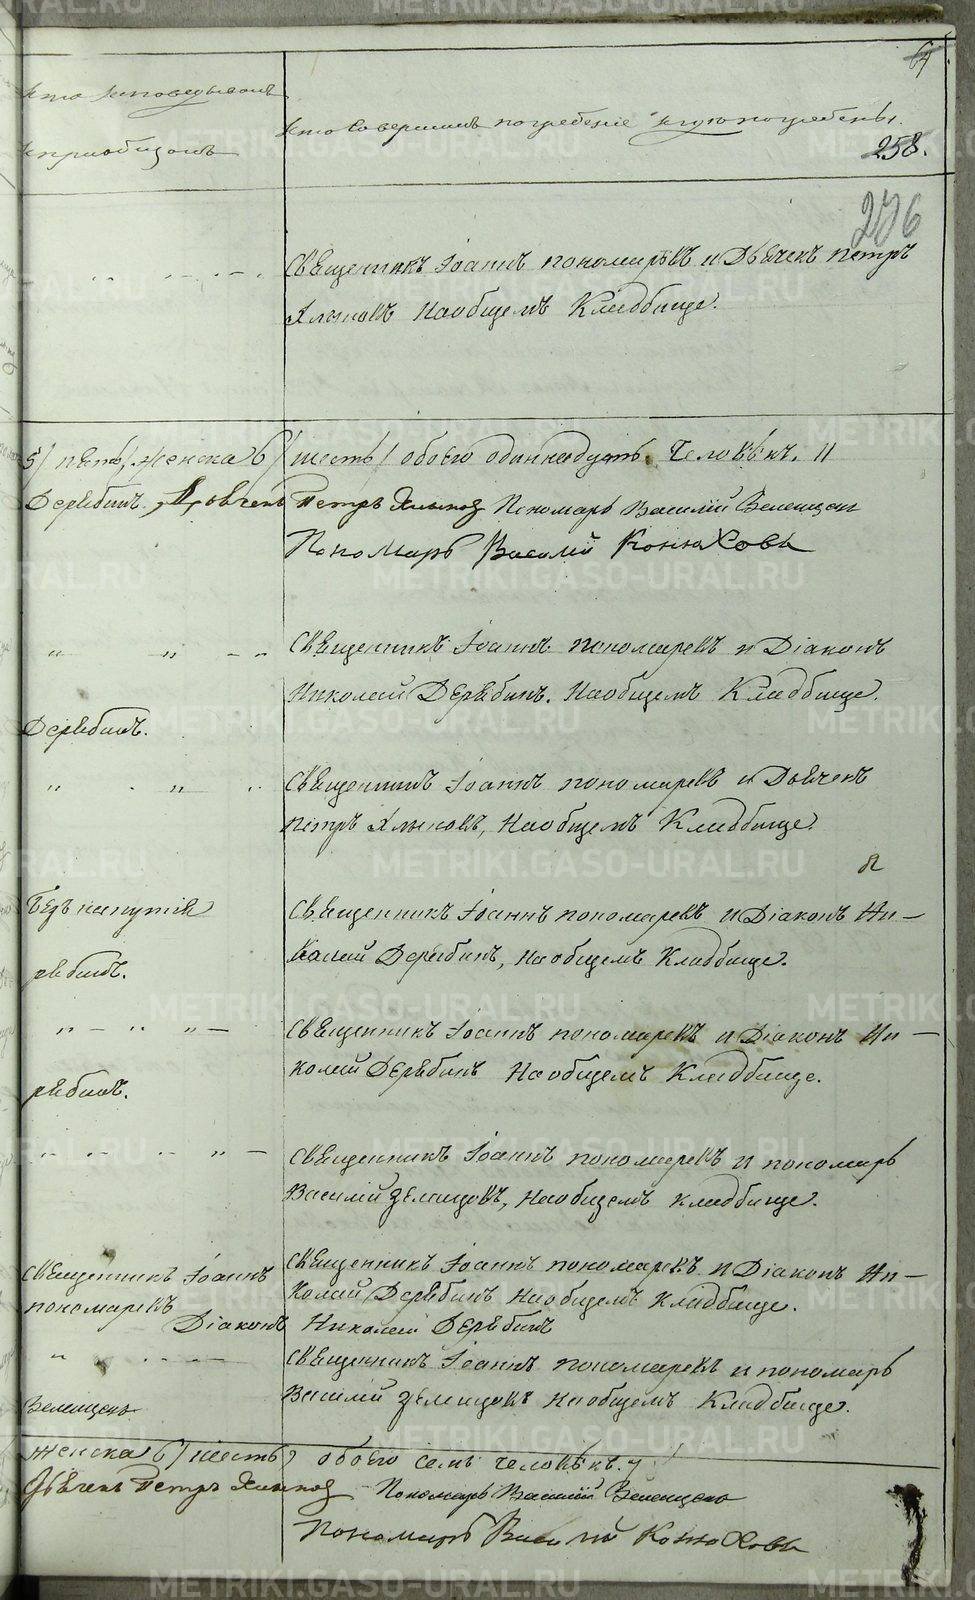 64
Кто исповедывалъ
Кто совершалъ погребенїе и гдѣ погребены.
и прїобщалъ
258.
276
Священникъ Іоаннъ пономаревъ и Дьячекъ петръ
Хлыновъ На общемъ Кладбище.
5/ пять/ женска 6/ шесть/ обоего одиннадцать Человѣкъ. 11
Дерябинъ. Дьячекъ Петръ Хлынов Пономарь Василїй Зеленцовъ
Пономарь Василїй Конюховъ
Священникъ Іоаннъ пономаревъ и Дїаконъ
Николай Дерябинъ. На общемъ Кладбище.
Дерябинъ.
Священникъ Іоаннъ пономаревъ и Дьячекъ
петръ Хлыновъ, На общемъ Кладбище.
Безъ напутїя
Священникъ Іоаннъ пономаревъ и Дїаконъ Ни-
рябинъ.
колай Дерябинъ, На общемъ Кладбище.
Священникъ Іоаннъ пономаревъ и Дїаконъ Ни-
рябинъ.
колай Дерябинъ На общемъ Кладбище.
Священникъ Іоаннъ пономаревъ и пономарь
Василїй Зеленцовъ, На общемъ кладбище.
Священникъ Іоаннъ
пономаревъ
Священникъ Іоаннъ пономаревъ и Дїаконъ Ни-
колай Дерябинъ На общемъ Кладбище.
Дїаконъ Николай Дерябинъ
Священникъ Іоаннъ пономаревъ и пономарь
Зеленцовъ
Василїй Зеленцовъ На общемъ Кладбище.
женска 6/ шесть/ обоего семь человѣкъ. 7
Дьячекъ Петръ Хлынов Пономарь Василїй Зеленцовъ
Пономарь Василїй Конюховъ
METRIKI.GASO-URAL.RU